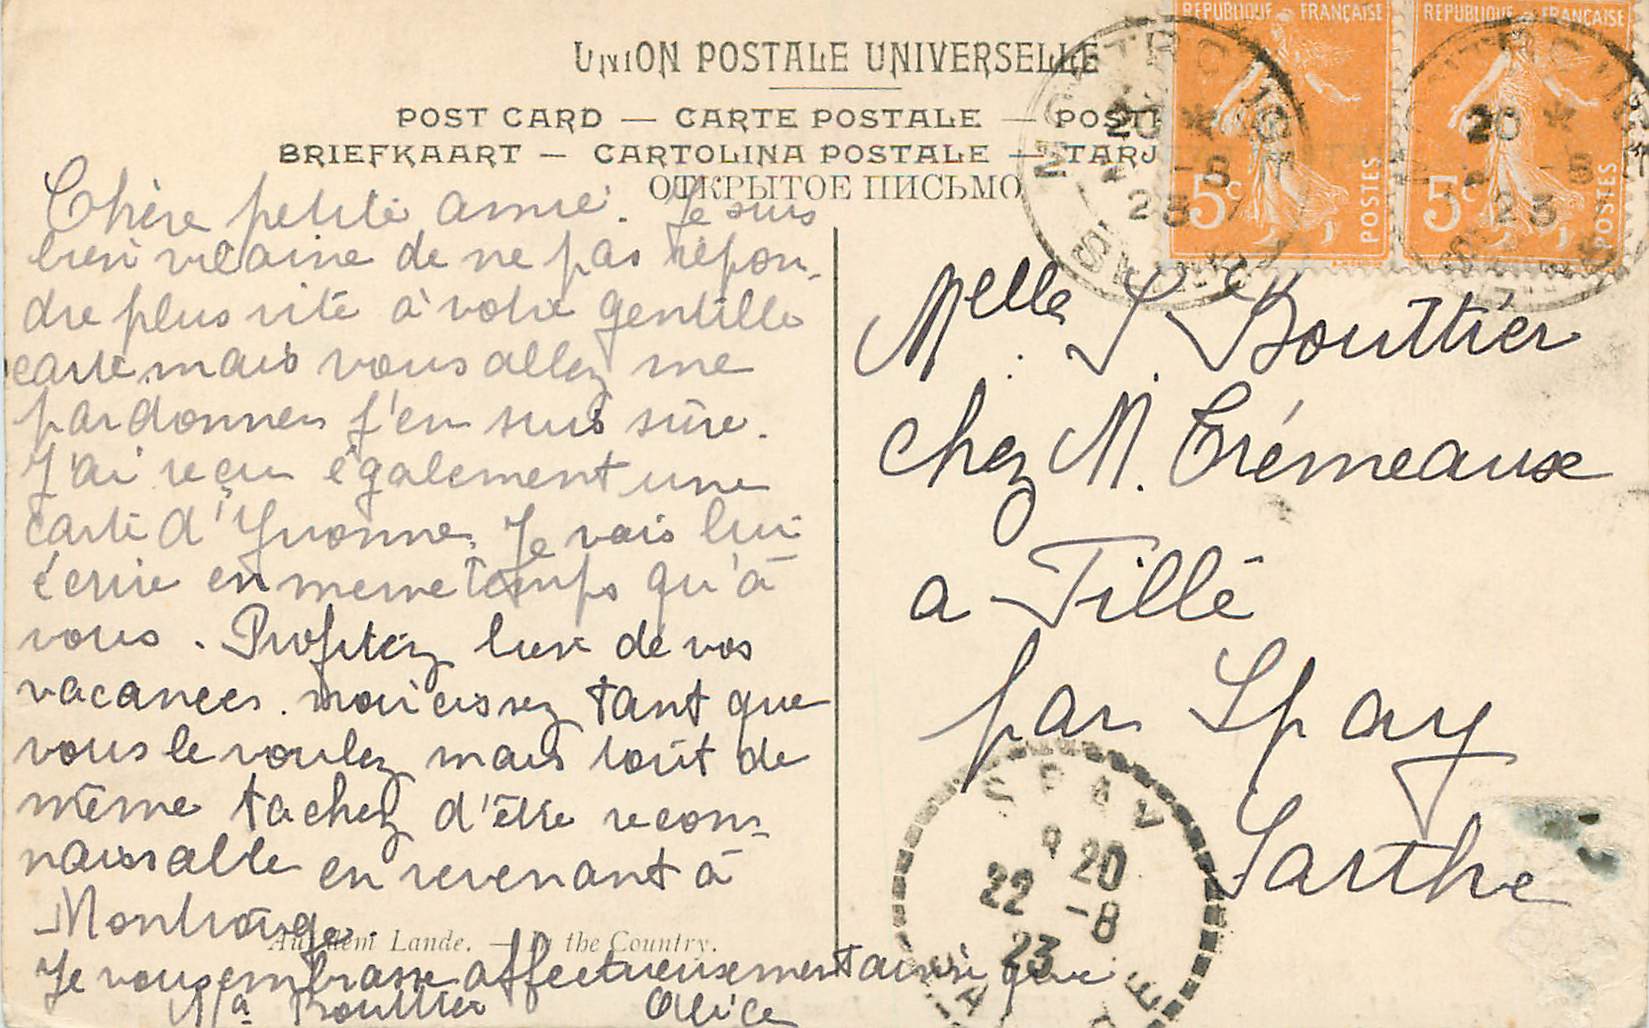 UNION POSTALE UNIVERSELLE
POST CARD — CARTE POSTALE — POST
BRIEFKAART — CARTOLINA POSTALE — TARJ
ОТКРЫТОЕ ПИСЬМО
REPUBLIQUE FRANÇAISE
5c
POSTES
REPUBLIQUE FRANÇAISE
5c
POSTES
MONTROUGE
20 * 
-8
23
20 *
-8
23
Chère petite amie. Je suis
bien vilaine de ne pas répon-
dre plus vite à votre gentille
carte mais vous allez me
pardonner j'en suis sûre.
J'ai reçu également une
carte d'Yvonne. Je vais lui
écrire en meme temps qu'à
vous. Profitez bien de vos
vacances. noircissez tant que
vous le voulez mais tout de
même tachez d'être recon-
naissable en revenant à
Montrouge.
Je vous embrasse affectueusement ainsi que
Mª Bouttier Alice
Auf dem Lande. — In the Country.
Melle S. Bouttier
chez M. Trémeaux
a Tillé
par Spay
Sarthe
SPAY
20
22 -8
23